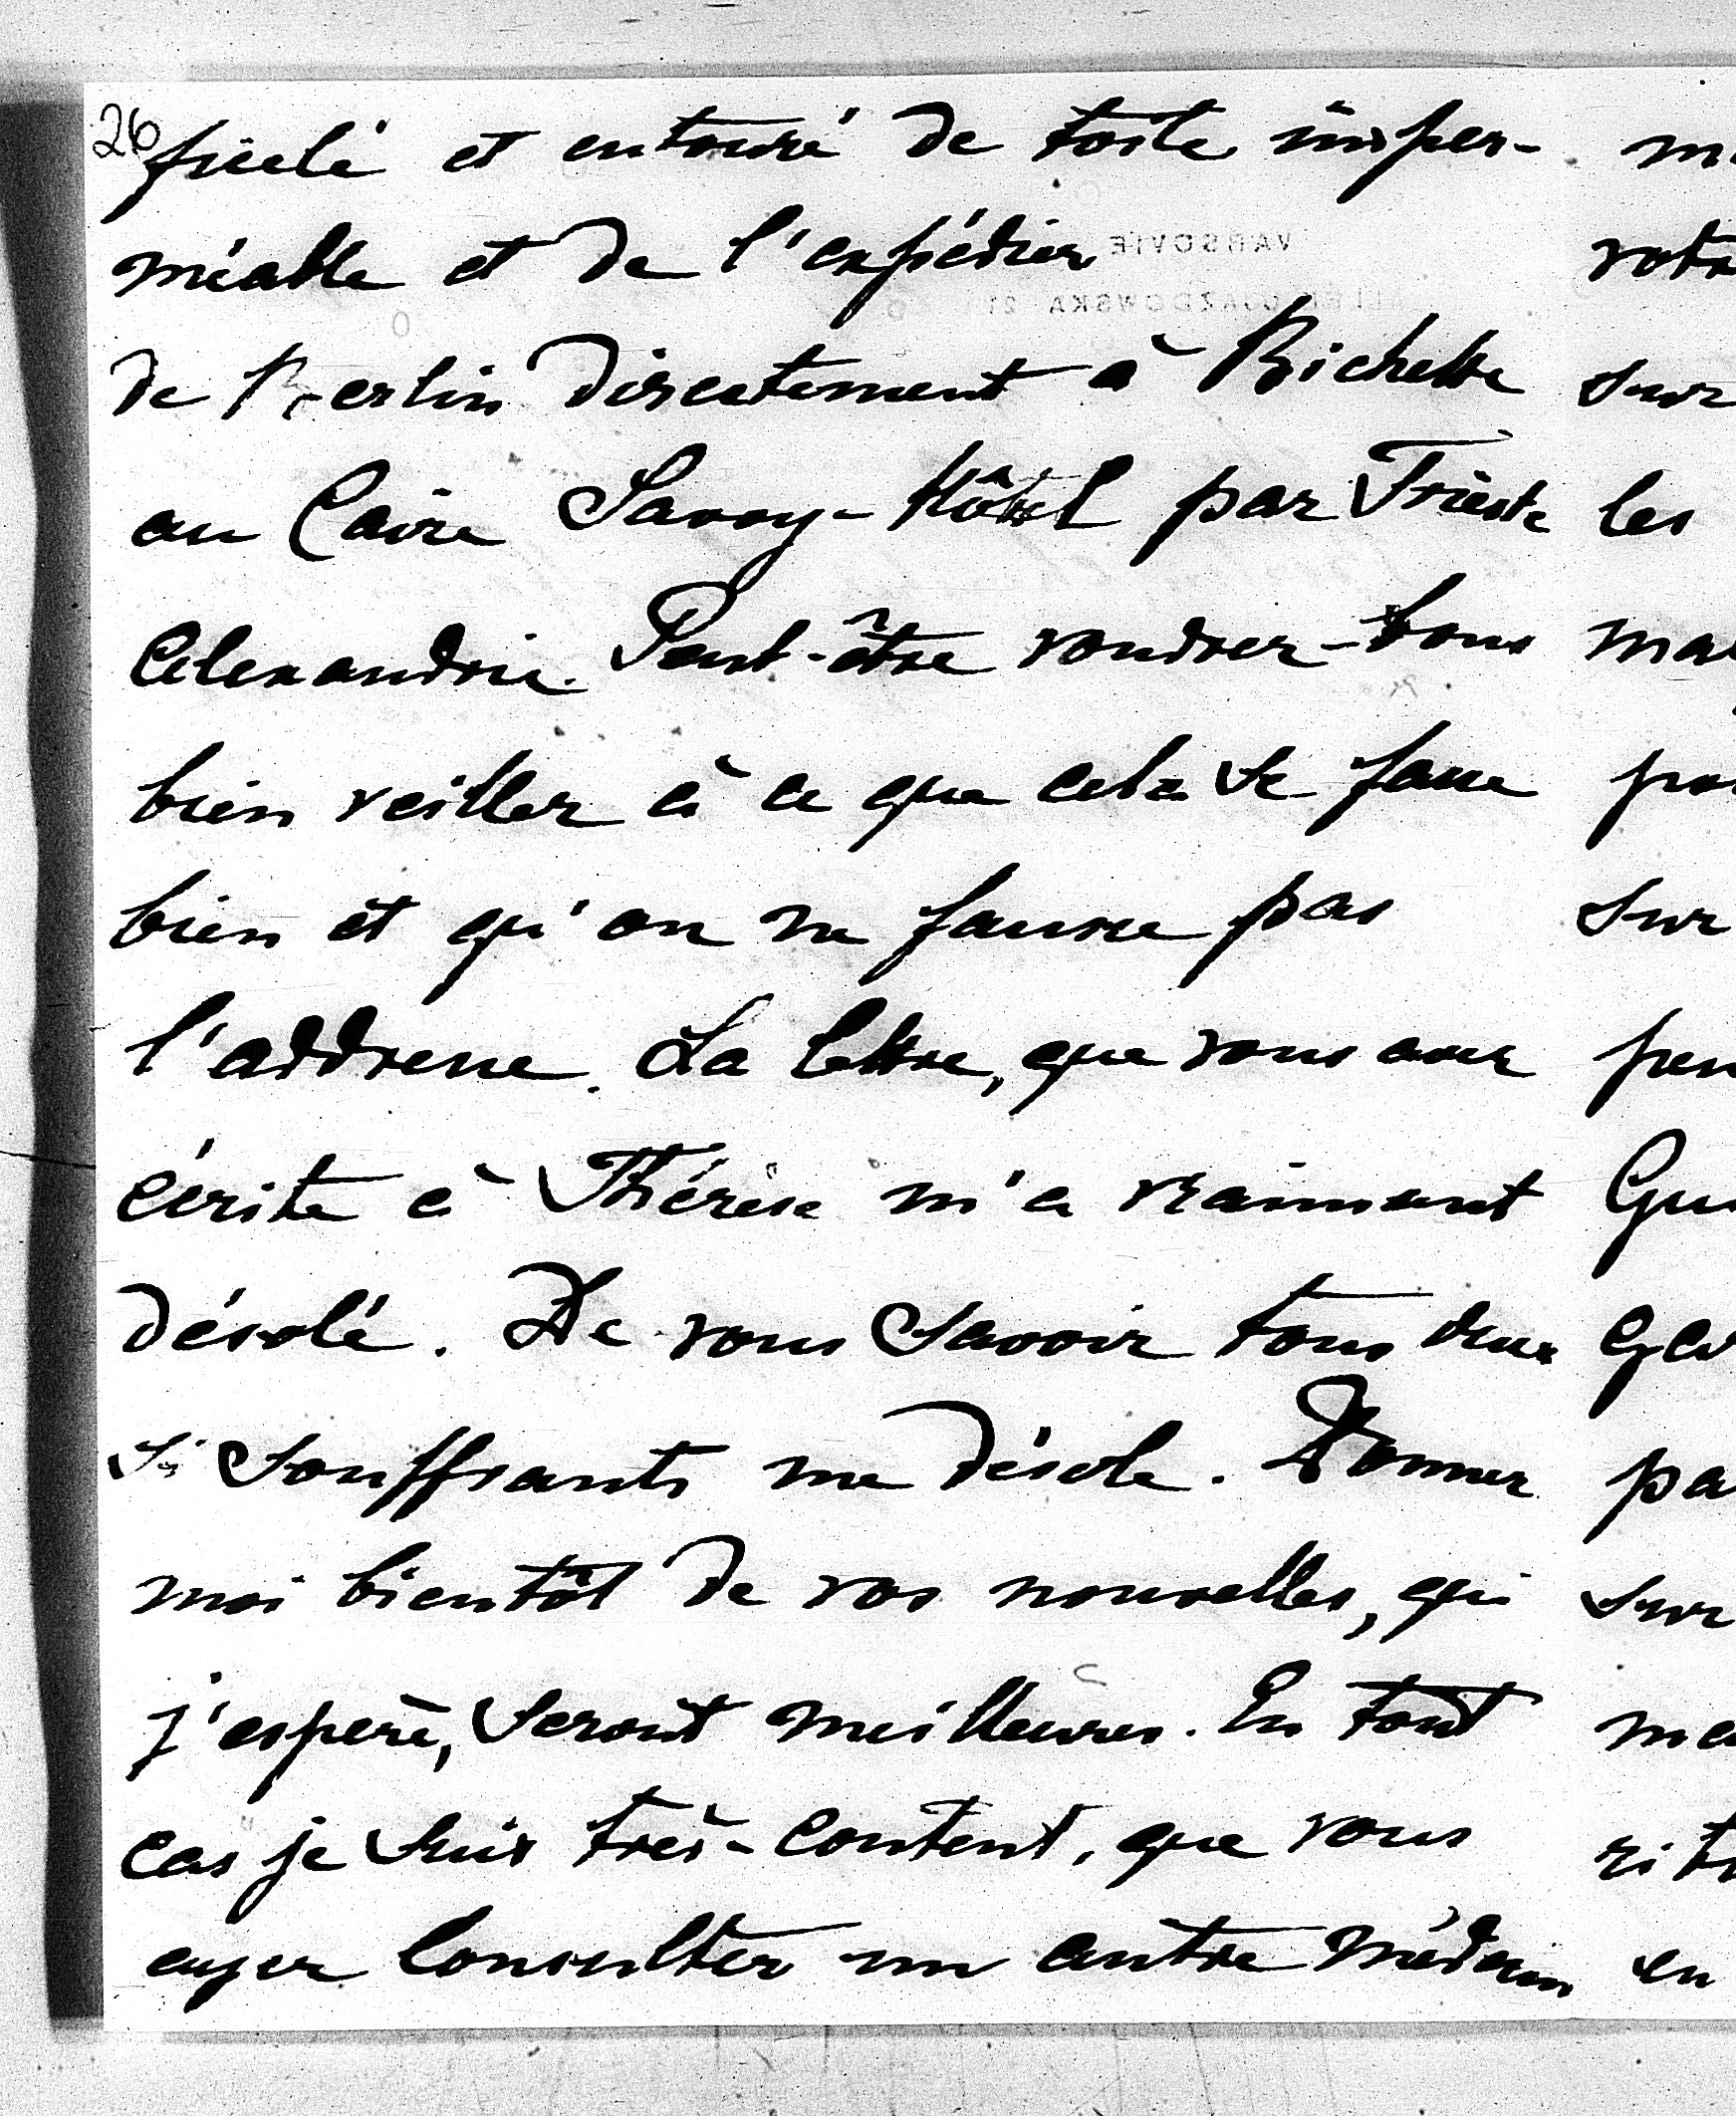 26
ficelé et entouré de toile imper-
méable et de l'expédier
de Berlin directement à Richette
au Caire Savoy-Hôtel par Trieste
Alexandrie. Peut-être voudrez-vous
bien veiller à ce que cela se fasse
bien et qu'on ne fausse pas
l'addresse. La lettre, que vous avez
écrite à Thérèse m'a vraiment
désolé. De vous savoir tous deux
si souffrants me désole. Donnez
moi bientôt de vos nouvelles, qui
j'espère, seront meilleures. En tout
cas je suis très-content, que vous
ayez consulter un autre médecin
VARSOVIE
ALLÉE UJAZDOWSKA 21
sur
les
sur
sur
en